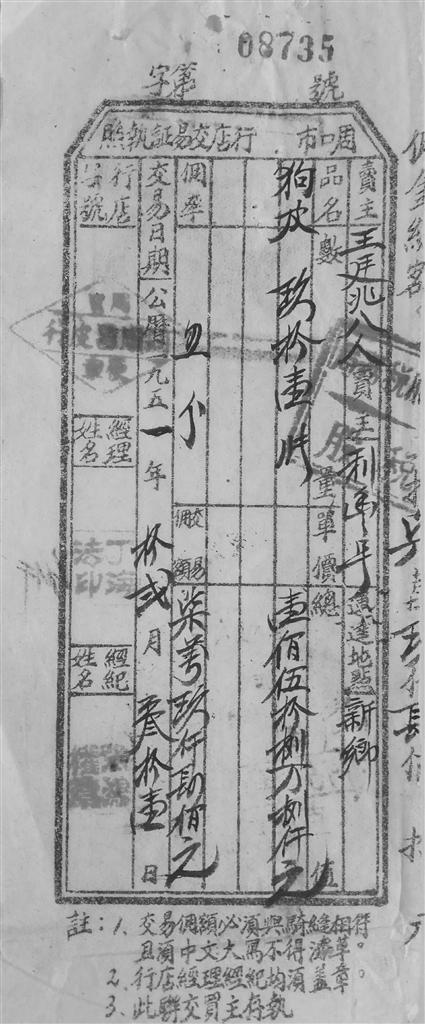 08735
字第 號
周口市 行店交易証執照
賣主 王廷兆八人 買主 利軍平 運達地點 新鄉
品名數量單價總值
狗皮 玖拾壹張 壹佰伍拾捌万捌仟元
佣率 五分 交易佣額 柒萬玖仟肆佰元
交易日期 公曆一九五一年拾弍月叁拾壹日
行店字號 經理姓名 經紀姓名
註：1、交易佣額必須與騎縫相符。
且須中文大寫不得潦草。
2、行店經理經紀均須蓋章。
3、此聯交買主存執